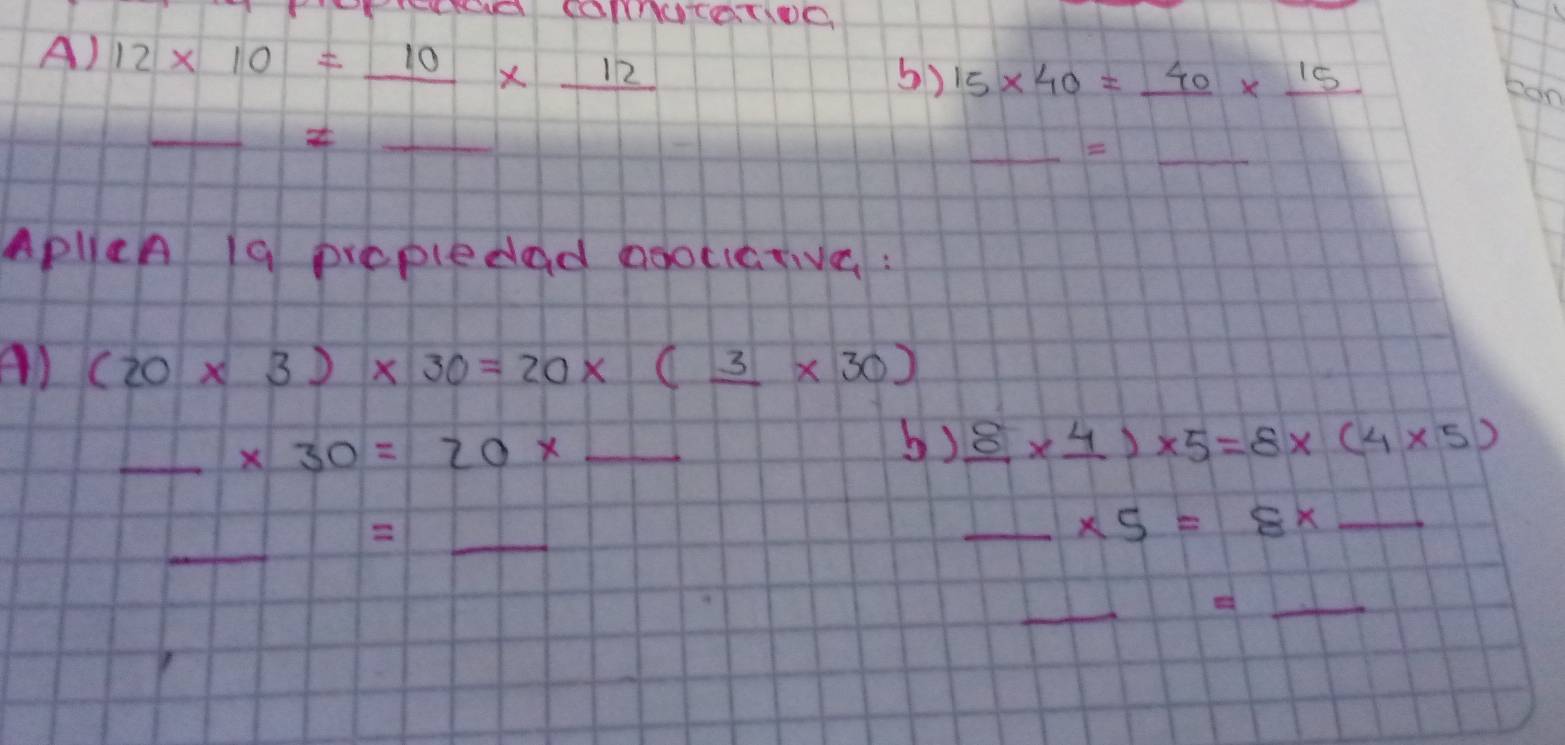 propiedad conmutativa
A) 12 × 10 = 10 × 12
___ = ___
b) 15 × 40 = 40 × 15
___ = ___
con
Aplica la propiedad asociativa:
A) (20 × 3) × 30 = 20 × ( 3 × 30)
___ × 30 = 20 × ___
___ = ___
b) 8 × 4 ) × 5 = 8 × (4 × 5)
___ × 5 = 8 × ___
___ = ___